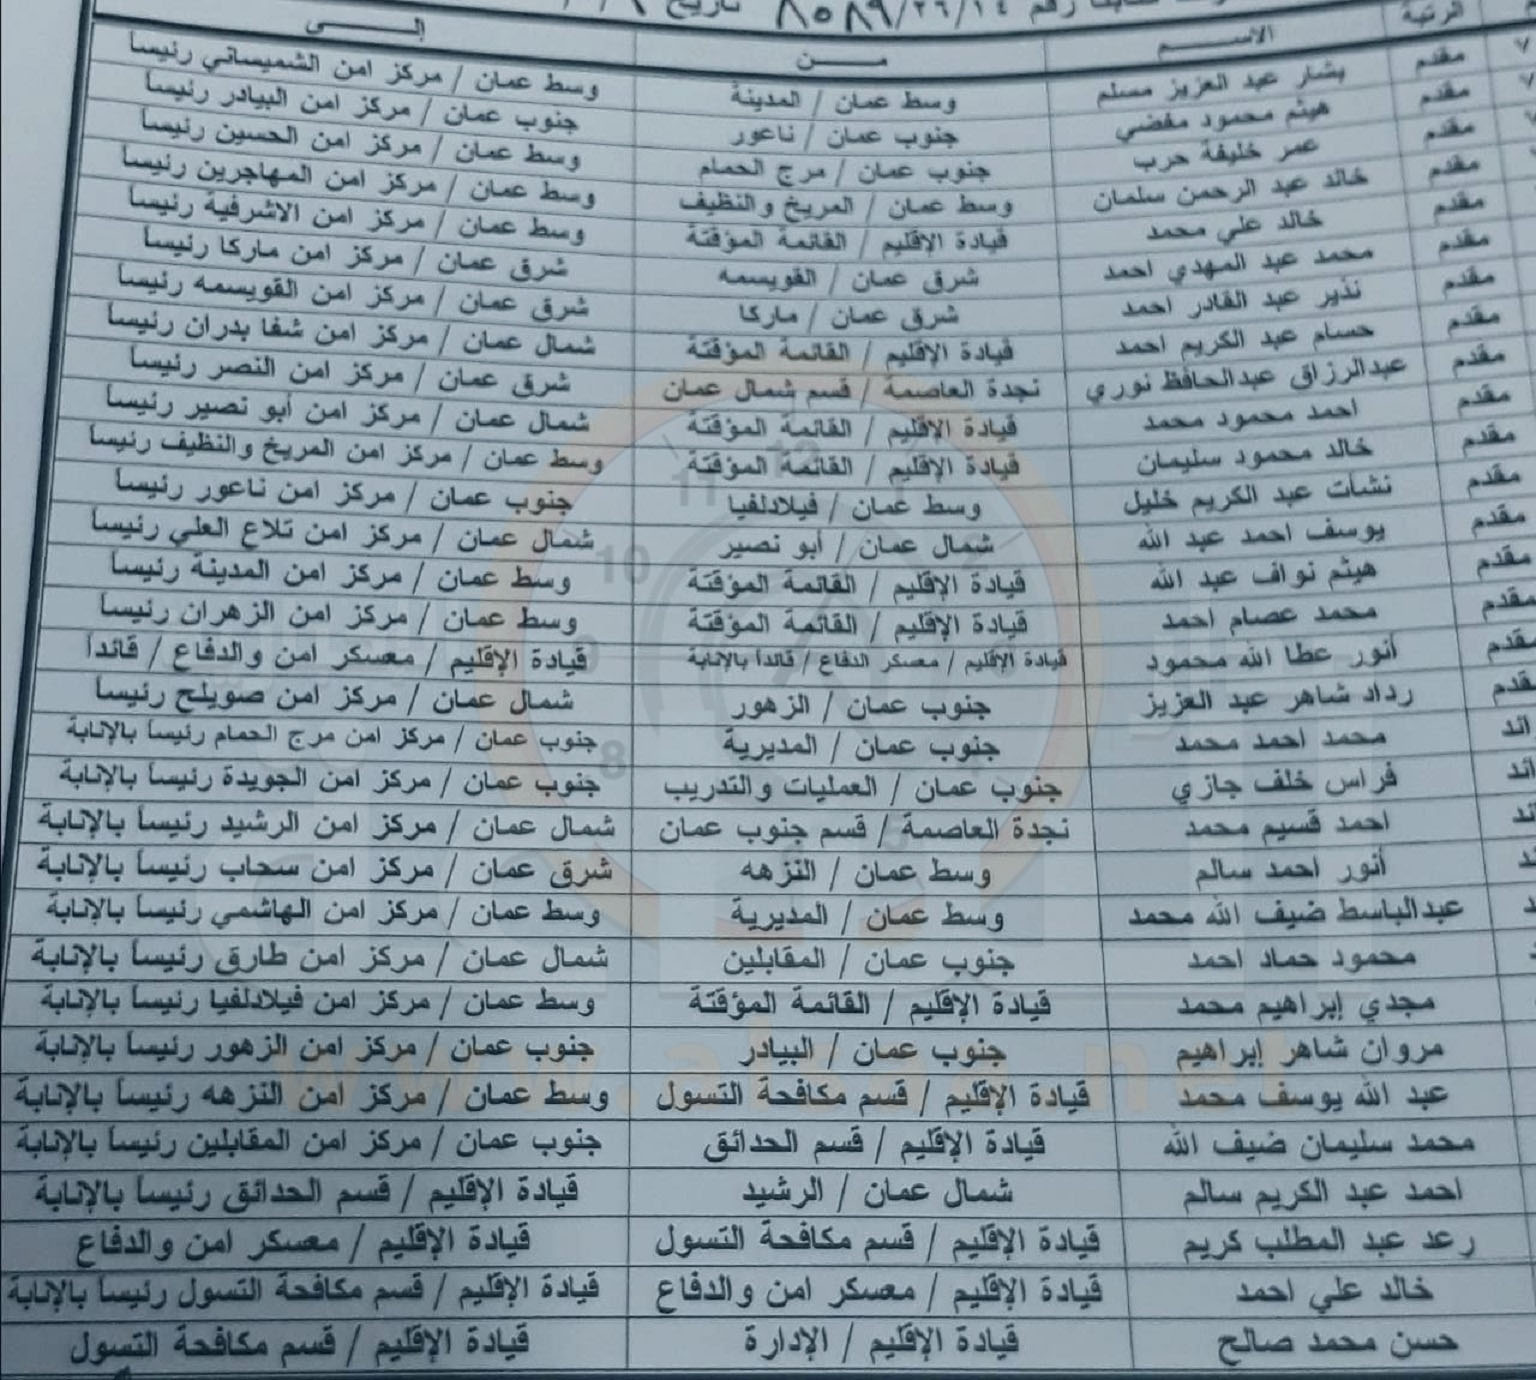 رقم ٨٥٨٩/٢٦/١٤ تاريخ
الرتبة الاســـــم مـــــن إلـــــى
مقدم بشار عبد العزيز مسلم وسط عمان / المدينة وسط عمان / مركز امن الشميساني رئيساً
مقدم هيثم محمود مفضي جنوب عمان / ناعور جنوب عمان / مركز امن البيادر رئيساً
مقدم عمر خليفة حرب جنوب عمان / مرج الحمام وسط عمان / مركز امن الحسين رئيساً
مقدم خالد عبد الرحمن سلمان وسط عمان / المريخ والنظيف وسط عمان / مركز امن المهاجرين رئيساً
مقدم خالد علي محمد قيادة الإقليم / القائمة المؤقتة وسط عمان / مركز امن الاشرفية رئيساً
مقدم محمد عبد المهدي احمد شرق عمان / القويسمه شرق عمان / مركز امن ماركا رئيساً
مقدم نذير عبد القادر احمد شرق عمان / ماركا شرق عمان / مركز امن القويسمه رئيساً
مقدم حسام عبد الكريم احمد قيادة الإقليم / القائمة المؤقتة شمال عمان / مركز امن شفا بدران رئيساً
مقدم عبدالرزاق عبدالحافظ نوري نجدة العاصمة / قسم شمال عمان شرق عمان / مركز امن النصر رئيساً
مقدم احمد محمود محمد قيادة الإقليم / القائمة المؤقتة شمال عمان / مركز امن أبو نصير رئيساً
مقدم خالد محمود سليمان قيادة الإقليم / القائمة المؤقتة وسط عمان / مركز امن المريخ والنظيف رئيساً
مقدم نشأت عبد الكريم خليل وسط عمان / فيلادلفيا جنوب عمان / مركز امن ناعور رئيساً
مقدم يوسف احمد عبد الله شمال عمان / أبو نصير شمال عمان / مركز امن تلاع العلي رئيساً
مقدم هيثم نواف عبد الله قيادة الإقليم / القائمة المؤقتة وسط عمان / مركز امن المدينة رئيساً
مقدم محمد عصام احمد قيادة الإقليم / القائمة المؤقتة وسط عمان / مركز امن الزهران رئيساً
مقدم أنور عطا الله محمود قيادة الإقليم / معسكر الدفاع / قائداً بالإنابة قيادة الإقليم / معسكر امن والدفاع / قائداً
قدم رداد شاهر عبد العزيز جنوب عمان / الزهور شمال عمان / مركز امن صويلح رئيساً
ائد محمد احمد محمد جنوب عمان / المديرية جنوب عمان / مركز امن مرج الحمام رئيساً بالإنابة
ائد فراس خلف جازي جنوب عمان / العمليات والتدريب جنوب عمان / مركز امن الجويدة رئيساً بالإنابة
ئد احمد قسيم محمد نجدة العاصمة / قسم جنوب عمان شمال عمان / مركز امن الرشيد رئيساً بالإنابة
ئد أنور احمد سالم وسط عمان / النزهه شرق عمان / مركز امن سحاب رئيساً بالإنابة
عبدالباسط ضيف الله محمد وسط عمان / المديرية وسط عمان / مركز امن الهاشمي رئيساً بالإنابة
محمود حماد احمد جنوب عمان / المقابلين شمال عمان / مركز امن طارق رئيساً بالإنابة
مجدي إبراهيم محمد قيادة الإقليم / القائمة المؤقتة وسط عمان / مركز امن فيلادلفيا رئيساً بالإنابة
مروان شاهر إبراهيم جنوب عمان / البيادر جنوب عمان / مركز امن الزهور رئيساً بالإنابة
عبد الله يوسف محمد قيادة الإقليم / قسم مكافحة التسول وسط عمان / مركز امن النزهه رئيساً بالإنابة
محمد سليمان ضيف الله قيادة الإقليم / قسم الحدائق جنوب عمان / مركز امن المقابلين رئيساً بالإنابة
احمد عبد الكريم سالم شمال عمان / الرشيد قيادة الإقليم / قسم الحدائق رئيساً بالإنابة
رعد عبد المطلب كريم قيادة الإقليم / قسم مكافحة التسول قيادة الإقليم / معسكر امن والدفاع
خالد علي احمد قيادة الإقليم / معسكر امن والدفاع قيادة الإقليم / قسم مكافحة التسول رئيساً بالإنابة
حسن محمد صالح قيادة الإقليم / الإدارة قيادة الإقليم / قسم مكافحة التسول